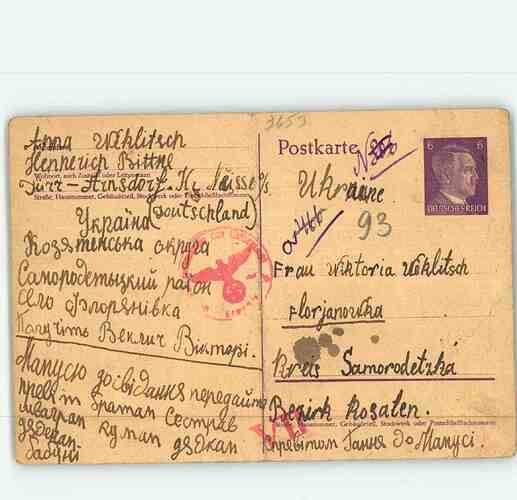 3653
Anna Wehlitsch
Hennerich Bittne
Wohnort, auch Zustell- oder Leitpostamt
Dürr-Arnsdorf. Kr. Neisse o/s
Straße, Hausnummer, Gebäudeteil, Stockwerk oder Postschließfachnummer
(Deutschland)
Україна
Козятенська округа
Самородетьцкий район
село Флорянівка
Получить Веклич Вікторі.
Манусю до свідання передайте
привіт братам сестрам
сватам кумам дядькам
Postkarte
6 6
DEUTSCHES REICH
Ukraine
93
Frau Wiktoria Wehlitsch
Florjanowka
Kreis Samorodetzka
Bezirk Kosaten.
Straße, Hausnummer, Gebäudeteil, Stockwerk oder Postschließfachnummer
спревітом Ганя до Манусі.